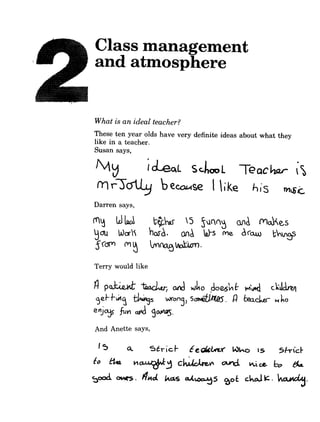 2
Class management
and atmosphere
What is an ideal teacher?
These ten year olds have very definite ideas about what they
like in a teacher.
Susan says,
My ideal school Teacher is
mr Jolly because I like his
Darren says,
my is funny and makes
you work hard. and lets me draw things
from my
Terry would like
A patient teacher, and who doesn't mind children
getting things wrong, sometimes. A teacher who
enjoys fun and games.
And Anette says,
is a strict teacher who is strict
to the naughty children and nice to the
good ones. And has always got chalk. handy.